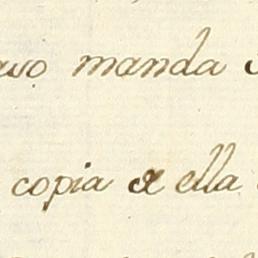 manda
copia de ella